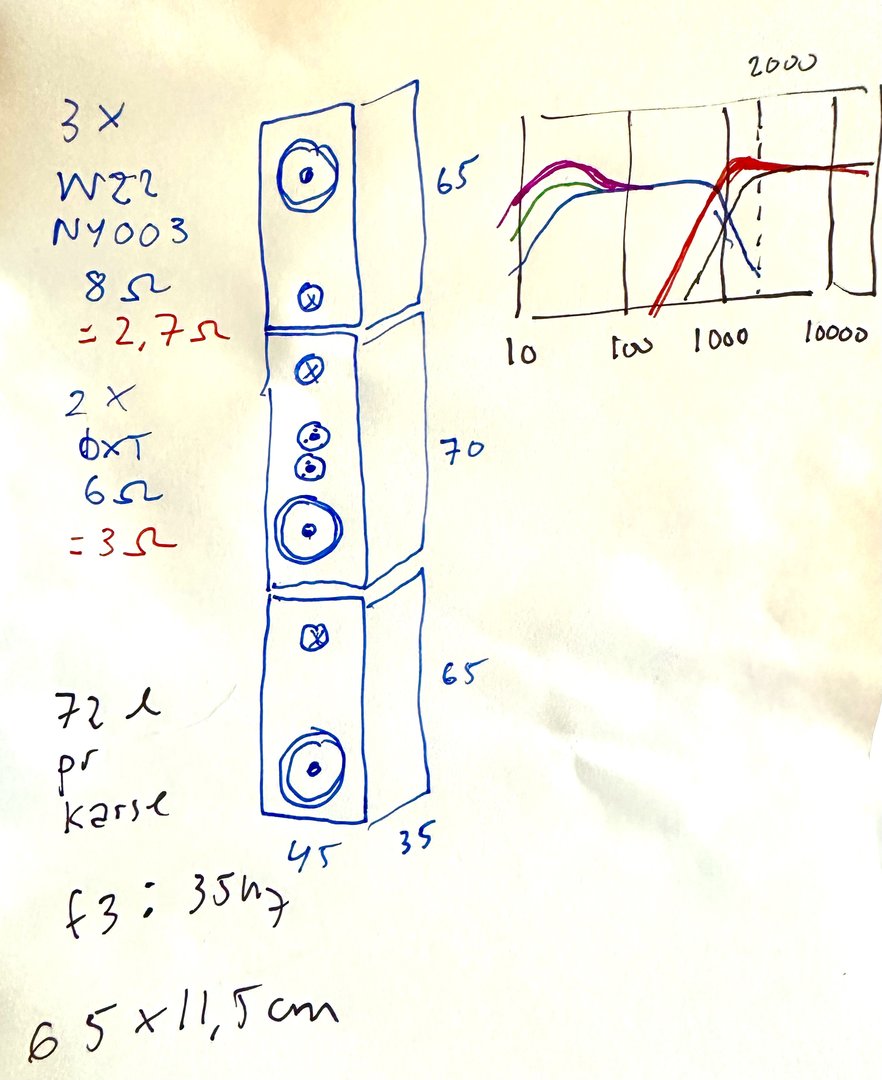 3 X
W22
NY003
8 Ω
= 2,7 Ω
2 X
ΦXT
6 Ω
= 3 Ω
72 l
pr
karse
f3 : 35hz
65 x 11,5 cm
x
x
x
65
70
65
45
35
2000
10
100
1000
10000